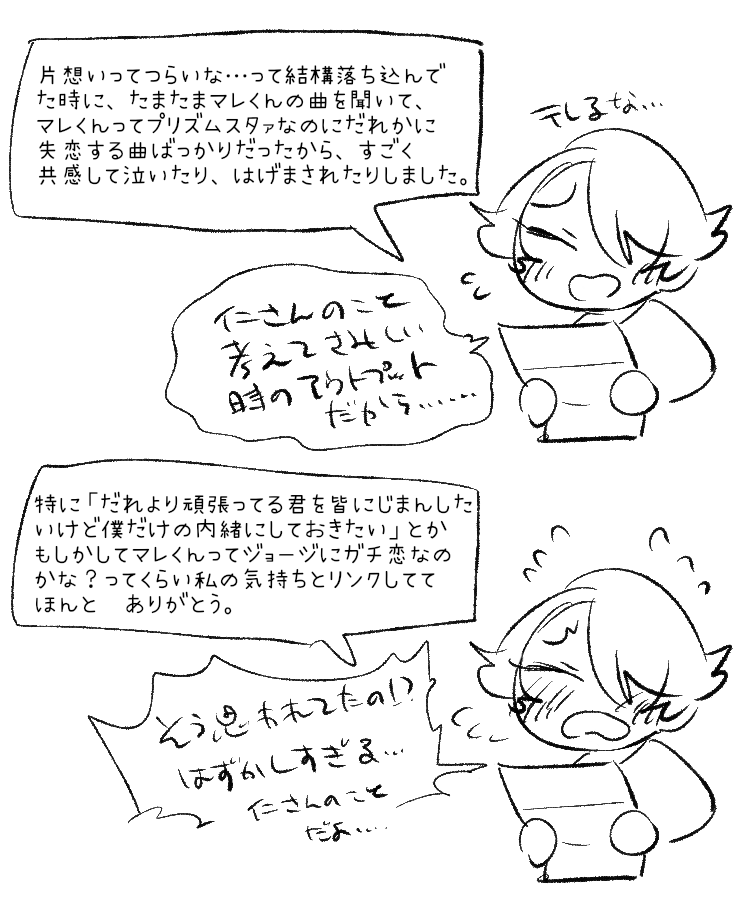 片想いってつらいな…って結構落ち込んで
た時に、たまたまマレくんの曲を聞いて、
マレくんってプリズムスタァなのにだれかに
失恋する曲ばっかりだったから、すごく
共感して泣いたり、はげまされたりしました。
テレるな…
仁さんのこと
考えてさみしい
時のアウトプット
だから……
特に「だれより頑張ってる君を皆にじまんした
いけど僕だけの内緒にしておきたい」とか
もしかしてマレくんってジョージにガチ恋なの
かな？ってくらい私の気持ちとリンクしてて
ほんと　ありがとう。
そう思われてたの!?
はずかしすぎる…
仁さんのこと
だよ……